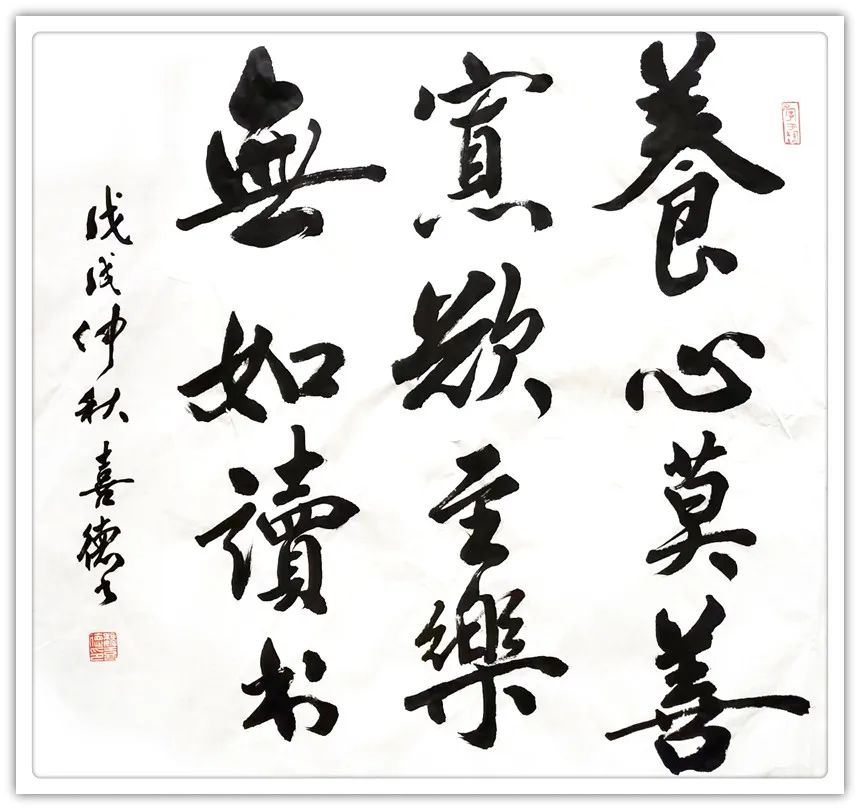 養心莫善
寡欲至樂
無如讀书
戊戌仲秋喜德书